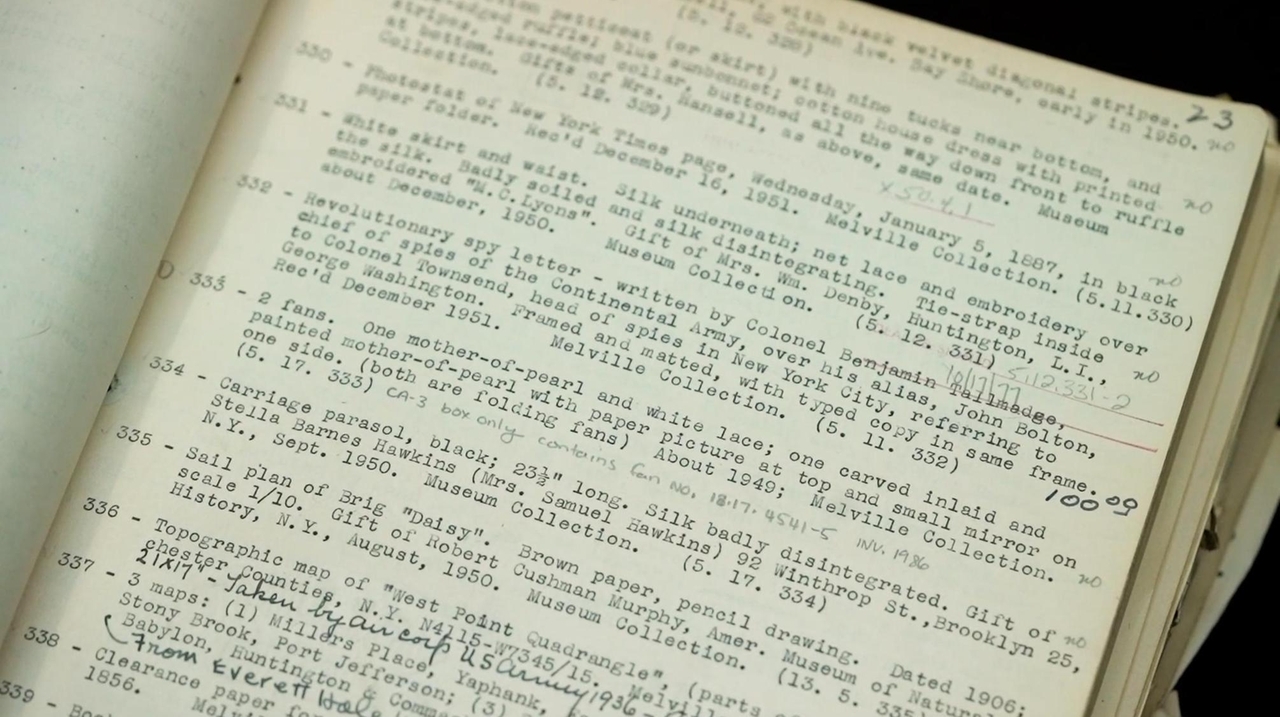 with black velvet diagonal stripes. 23
Ocean Ave. Bay Shore, early in 1950. no
(5. 12. 328)
petticoat (or skirt) with nine tucks near bottom, and
ruffle; blue sunbonnet; cotton house dress with printed no
stripes, lace-edged collar, buttoned all the way down front to ruffle
at bottom. Gifts of Mrs. Hansell, as above, same date. Museum
Collection. (5. 12. 329)
X50.4.1
330 - Photostat of New York Times page, Wednesday, January 5, 1887, in black no
paper folder. Rec'd December 16, 1951. Melville Collection. (5.11.330)
331 - White skirt and waist. Silk underneath; net lace and embroidery over
the silk. Badly soiled and silk disintegrating. Tie-strap inside
embroidered "M.C.Lyons". Gift of Mrs. Wm. Denby, Huntington, L.I., no
about December, 1950. Museum Collection. (5. 12. 331)
10/17/77 5.12.331-2
332 - Revolutionary spy letter - written by Colonel Benjamin Tallmadge,
chief of spies of the Continental Army, over his alias, John Bolton,
to Colonel Townsend, head of spies in New York City, referring to
George Washington. Framed and matted, with typed copy in same frame.
Rec'd December 1951. Melville Collection. (5. 11. 332) 100 00
333 - 2 fans. One mother-of-pearl and white lace; one carved inlaid and
painted mother-of-pearl with paper picture at top and small mirror on
one side. (both are folding fans) About 1949; Melville Collection. no
(5. 17. 333) CA-3 box only contains fan NO. 18.17.4541-5 INV. 1986
334 - Carriage parasol, black; 23½" long. Silk badly disintegrated. Gift of no
Stella Barnes Hawkins (Mrs. Samuel Hawkins) 92 Winthrop St.,Brooklyn 25,
N.Y., Sept. 1950. Museum Collection. (5. 17. 334)
335 - Sail plan of Brig "Daisy". Brown paper, pencil drawing. Dated 1906;
scale 1/10. Gift of Robert Cushman Murphy, Amer. Museum of Natural
History, N.Y., August, 1950. Museum Collection. (13. 5. 335)
336 - Topographic map of "West Point Quadrangle", (parts of
chester Counties, N.Y. N4115-W7345/15.
21x17" - Taken by air corp US Army 1936
337 - 3 maps: (1) Millers Place, Yaphank,
Stony Brook, Port Jefferson; (3)
Babylon, Huntington &
(From Everett
338 - Clearance paper
1856.
339 -